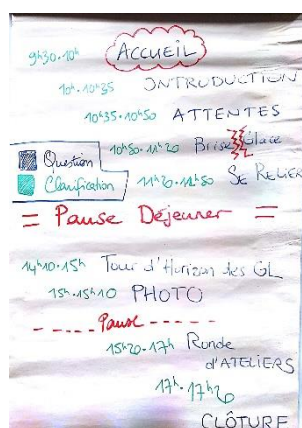 9h30-10h ACCUEIL
10h-10h35 INTRODUCTION
10h35-10h50 ATTENTES
10h50-11h20 Brise Glace
Question
Clarification
11h20-11h50 SE RELIER
= Pause Déjeuner =
14h10-15h Tour d'Horizon des GL
15h-15h10 PHOTO
Pause
15h20-17h Ronde
d'ATELIERS
17h-17h20
CLÔTURE